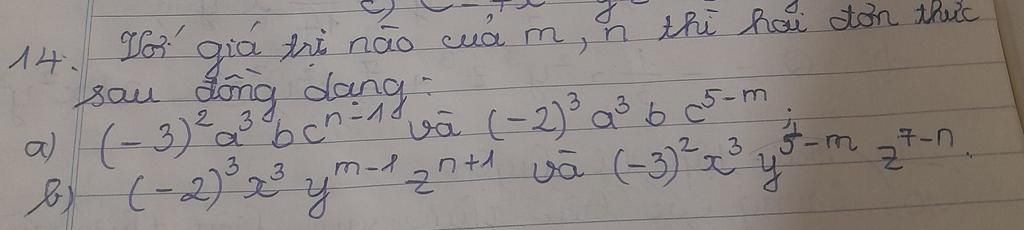 14. Với giá trị nào của m, n thì hai đơn thức
sau đồng dạng:
a) (-3)² a³ b cⁿ⁻¹ và (-2)³ a³ b c⁵⁻ᵐ.
b) (-2)³ x³ yᵐ⁻¹ zⁿ⁺¹ và (-3)² x³ y⁵⁻ᵐ z⁷⁻ⁿ.